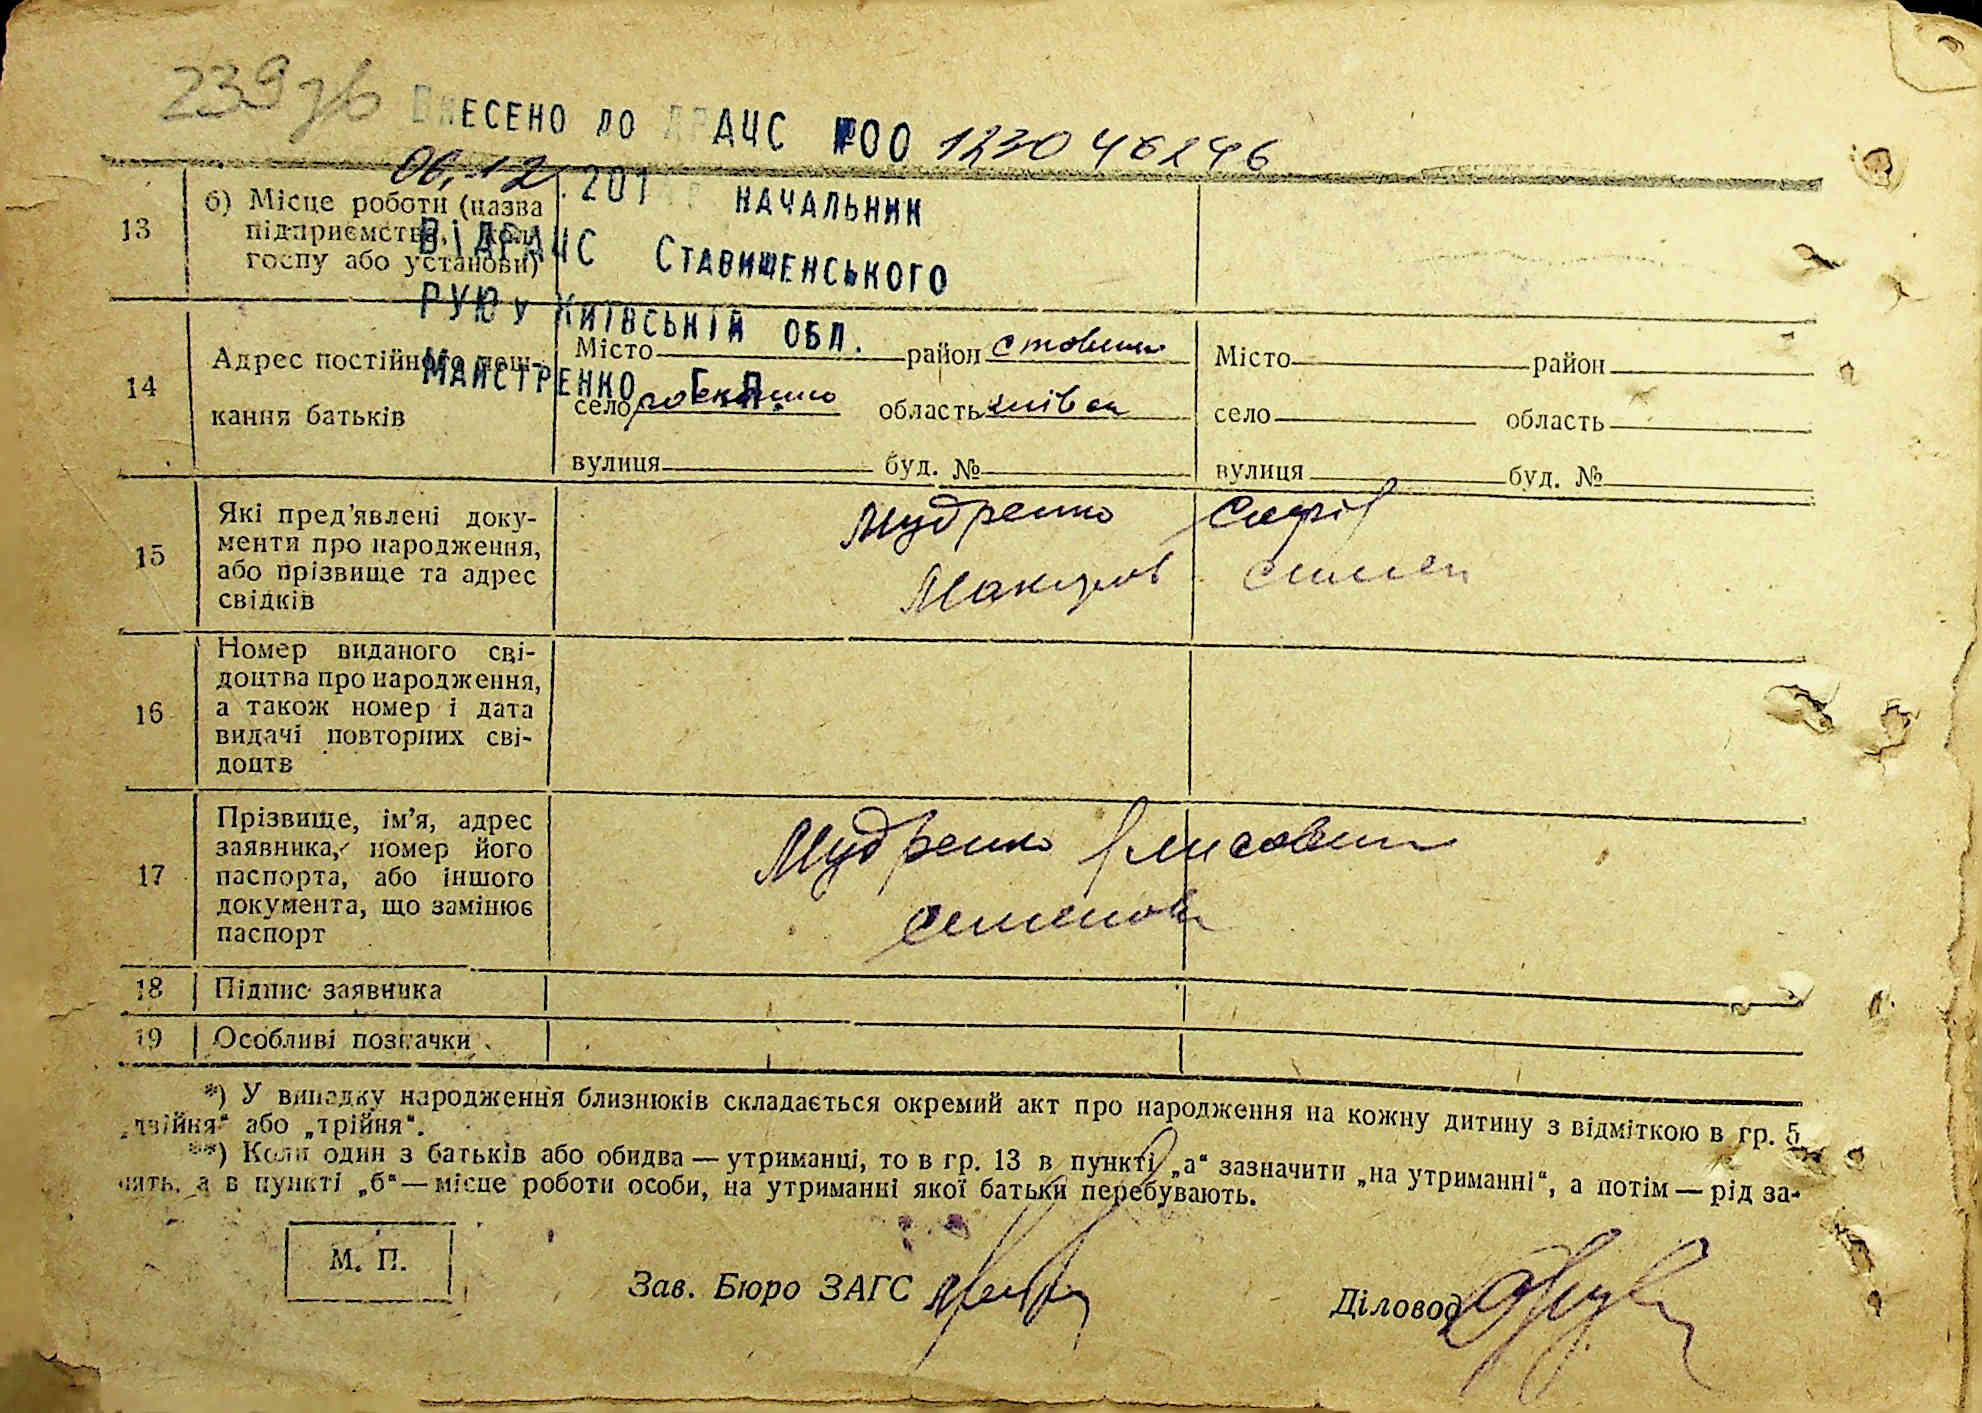 239зв
ВНЕСЕНО ДО ДРАЦС №00 1230 46246
06.12.201 НАЧАЛЬНИК
ВІДРАЦС СТАВИЩЕНСЬКОГО
РУЮ У КИЇВСЬКІЙ ОБЛ.
МАЙСТРЕНКО Г.П.
13
б) Місце роботи (назва
підприємства, кол-
госпу або установи)
14
Адрес постійного меш-
кання батьків
Місто район ставищ
село область київськ
вулиця буд. №
Місто район
село область
вулиця буд. №
15
Які пред'явлені доку-
менти про народження,
або прізвище та адрес
свідків
Мудренко
16
Номер виданого сві-
доцтва про народження,
а також номер і дата
видачі повторних сві-
доцтв
17
Прізвище, ім'я, адрес
заявника, номер його
паспорта, або іншого
документа, що замінює
паспорт
Мудренко
18 Підпис заявника
19 Особливі позначки
*) У випадку народження близнюків складається окремий акт про народження на кожну дитину з відміткою в гр. 5
„двійня“ або „трійня“.
**) Коли один з батьків або обидва — утриманці, то в гр. 13 в пункті „а“ зазначити „на утриманні“, а потім — рід за-
нять, а в пункті „б“ — місце роботи особи, на утриманні якої батьки перебувають.
М. П.
Зав. Бюро ЗАГС
Діловод